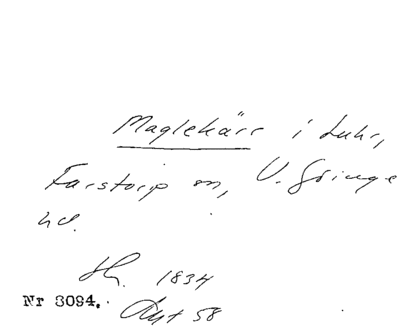 Maglekärr i Luhr,
Farstorp sn, V. Göinge
hd.
1834
Nr 3094. Akt 58